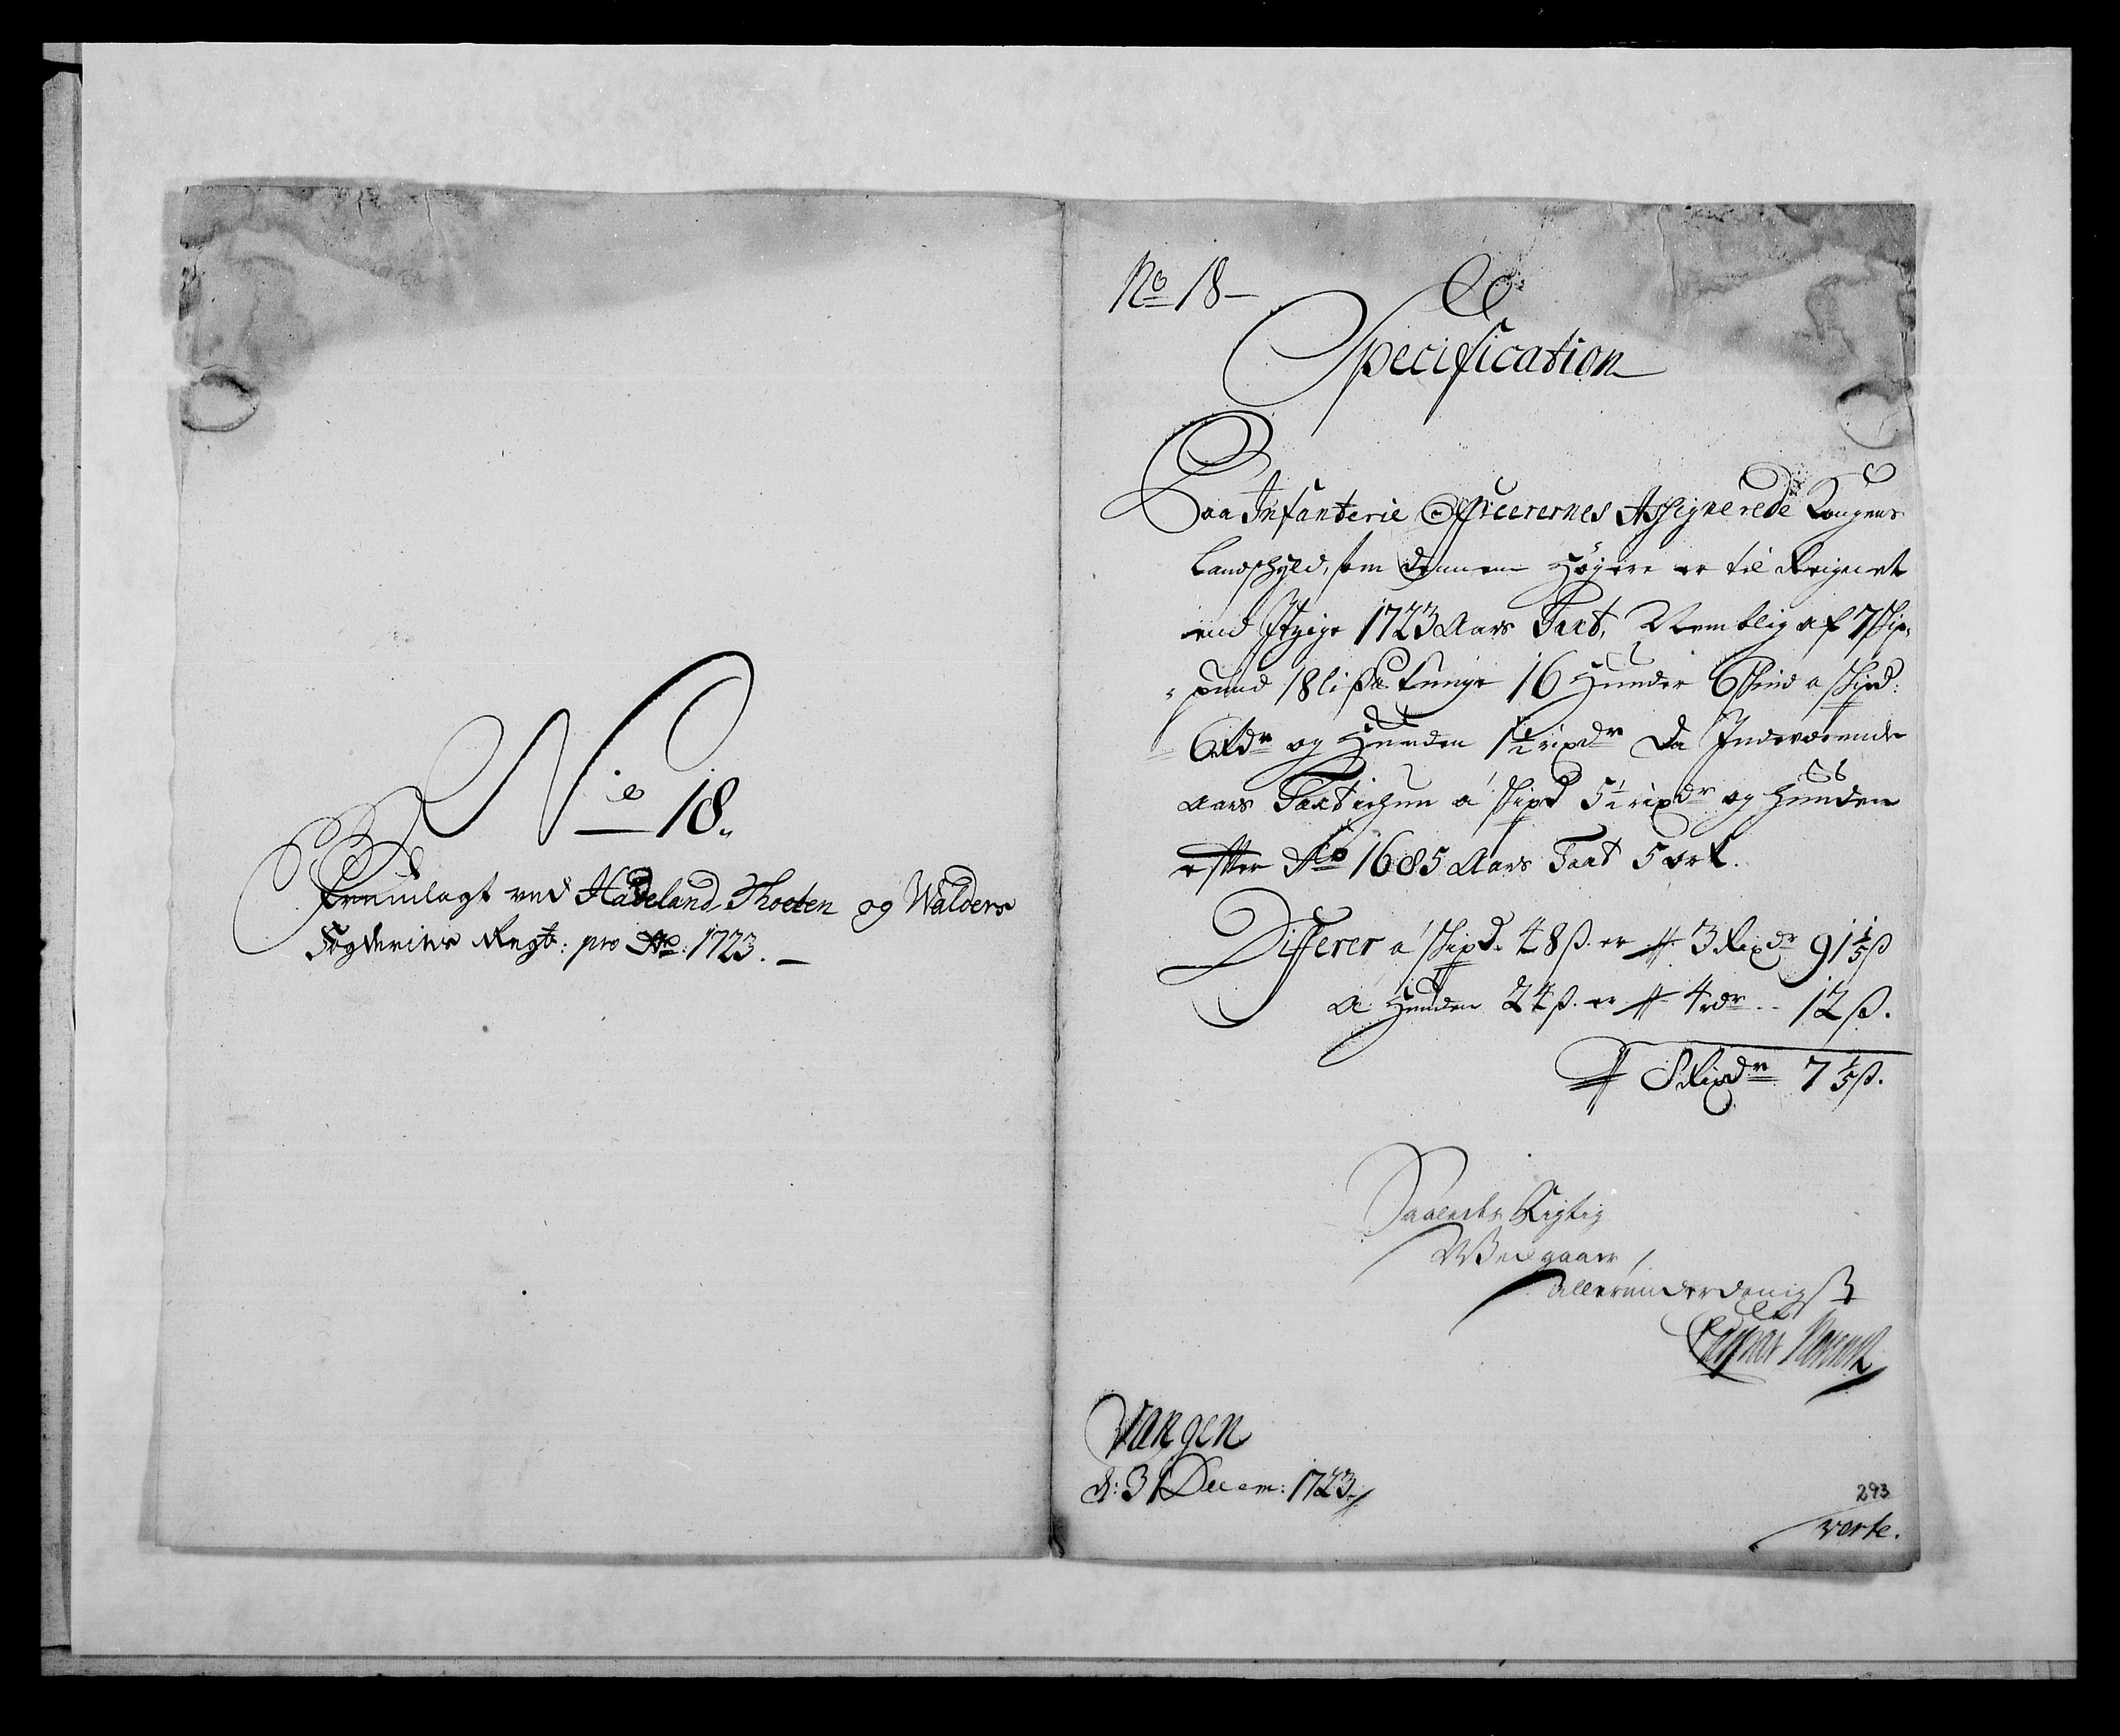 No 18.
Fremlagt ved Hadeland Thoten og Walders
Fogderies Regt: pro Ao: 1723.
No 18
Specification
Paa Infanterie Officerernes Assignerede Kongens
Landschyld, som dennem Høyere er til Reignet
end Itzige 1723 Aars Taxt, Nemblig af 7 Skip-
pund 18 li 16 Hunder 6 skind a skipd:
6 rdr og Hunden 1½ rixdr da Indeværende
Aars Taxt ichun a skipd 5½ rixdr og hunden
efter Ao 1685 Aars Taxt 5 ort.
Differer a skipd. 48 ß. er 3 Rixdr 91 1/5 ß
a Hunden 24 ß. er 4 rdr - - 12 ß.
8 Rixdr 7 1/5 ß.
Saaledes Rigtig
allerunderdanigst
Vangen
d: 31 Decem: 1723
293
verte.